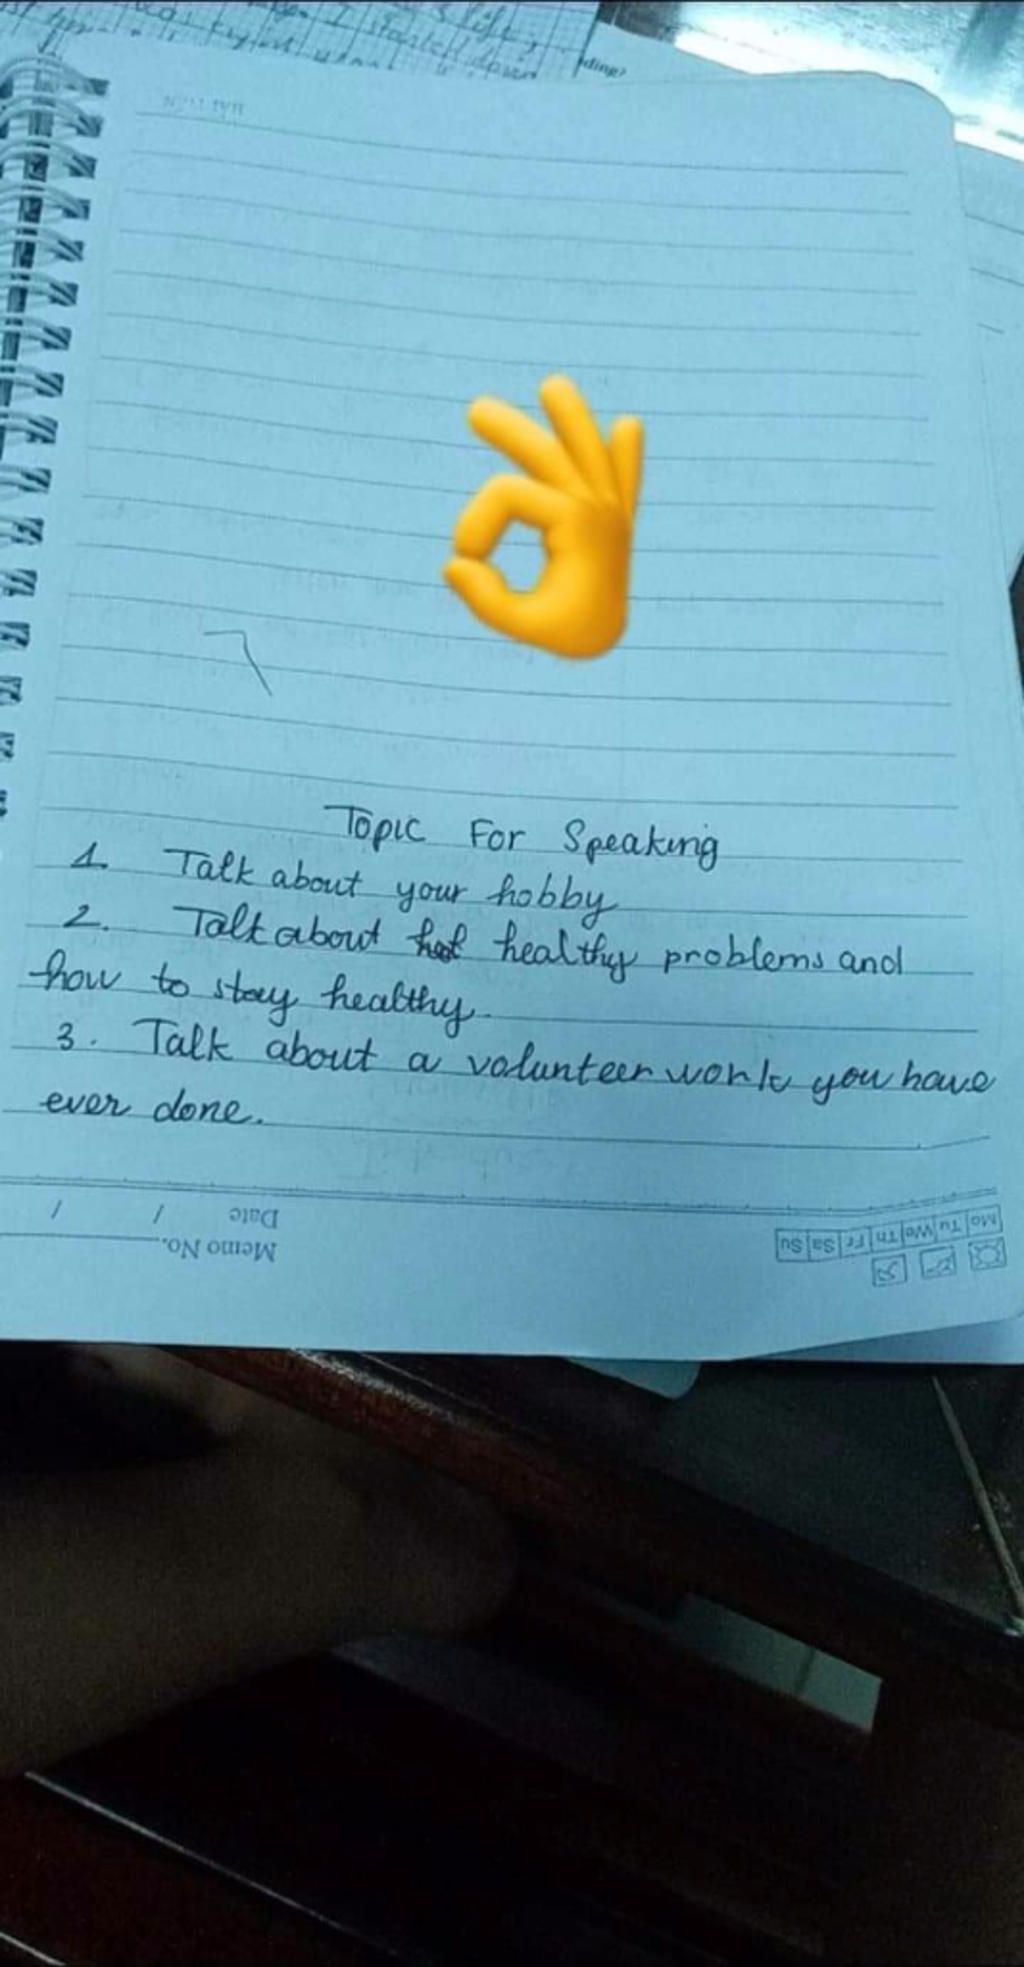 ding?
Topic For Speaking
1. Talk about your hobby
2. Talk about healthy problems and
how to stay healthy.
3. Talk about a volunteer work you have
ever done.
Memo No.
Date / /
Mo Tu We Th Fr Sa Su